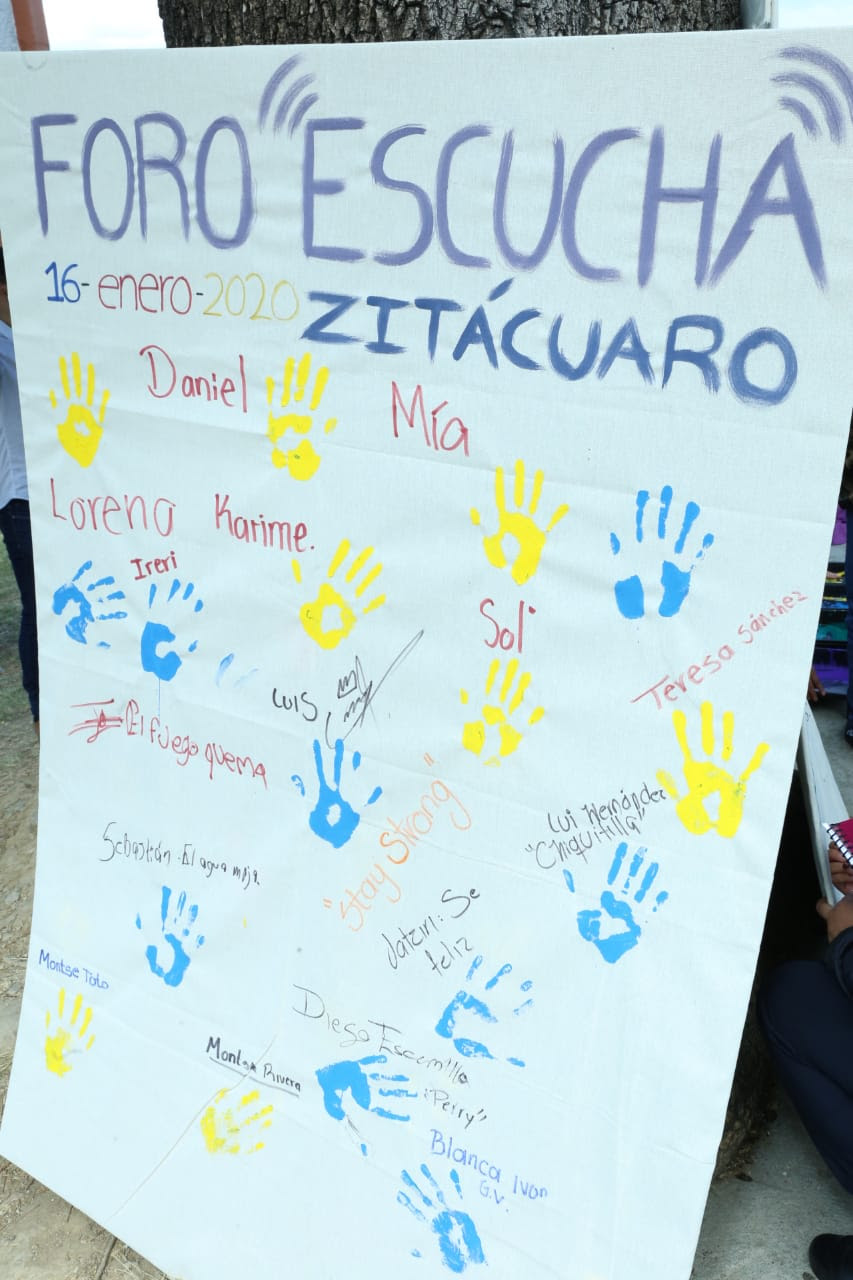 FORO "ESCUCHA"
16-enero-2020 ZITÁCUARO
Daniel
Mía
Lorena
Karime.
Ireri
Sol
Teresa Sánchez
LUIS
El fuego quema
"Stay Strong"
Lui Hernández
"Chiquitilla"
Sebastián: El agua moja.
Jatziri: Se
feliz
Montse Toto
Diego Escamilla
"Perry"
Rivera
Blanca Ivon
G.V.